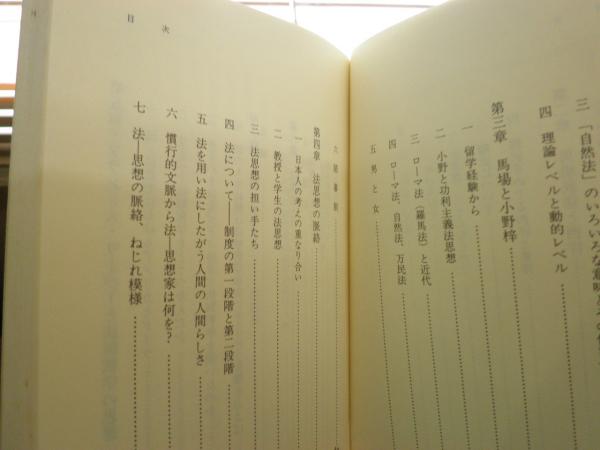 三 「自然法」のいろいろな意味と
四 理論レベルと動的レベル
第三章 馬場と小野梓
一 留学経験から
二 小野と功利主義法思想
三 ローマ法（羅馬法）と近代
四 ローマ法、自然法、万民法
五 男と女
目次
六
第四章 法思想の脈絡
一 日本人の考えの重なり合い
二 教授と学生の法思想
三 法思想の担い手たち
四 法について――制度の第一段階と第二段階
五 法を用い法にしたがう人間の人間らしさ
六 慣行的文脈から法―思想家は何を？
七 法―思想の脈絡、ねじれ模様